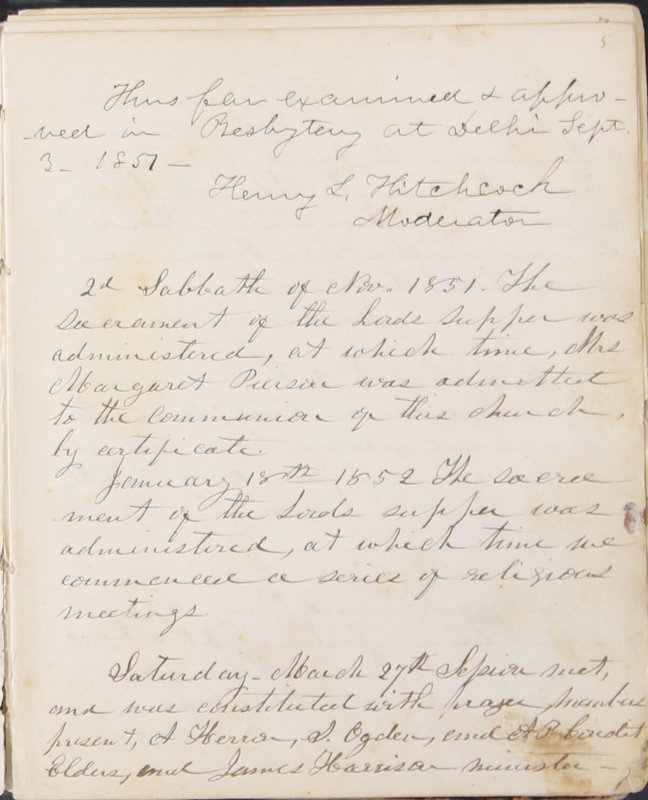 5
Thus far examined & appro-
-ved in Presbytery at Delhi Sept.
3- 1851 -
Henry L. Hitchcock
Moderator
2d Sabbath of Nov. 1851. The
sacrament of the Lords supper was
administered, at which time, Mrs.
Margaret Pierson was admitted
to the communion of this church,
by certificate.
January 18th 1852 The sacra
ment of the Lords supper was
administered, at which time we
commenced a series of religious
meetings.
Saturday - March 27th Session met,
and was constituted with prayer, members
present, A Herron, S. Ogden, and A P Condit
Elders, and James Harrison minister -